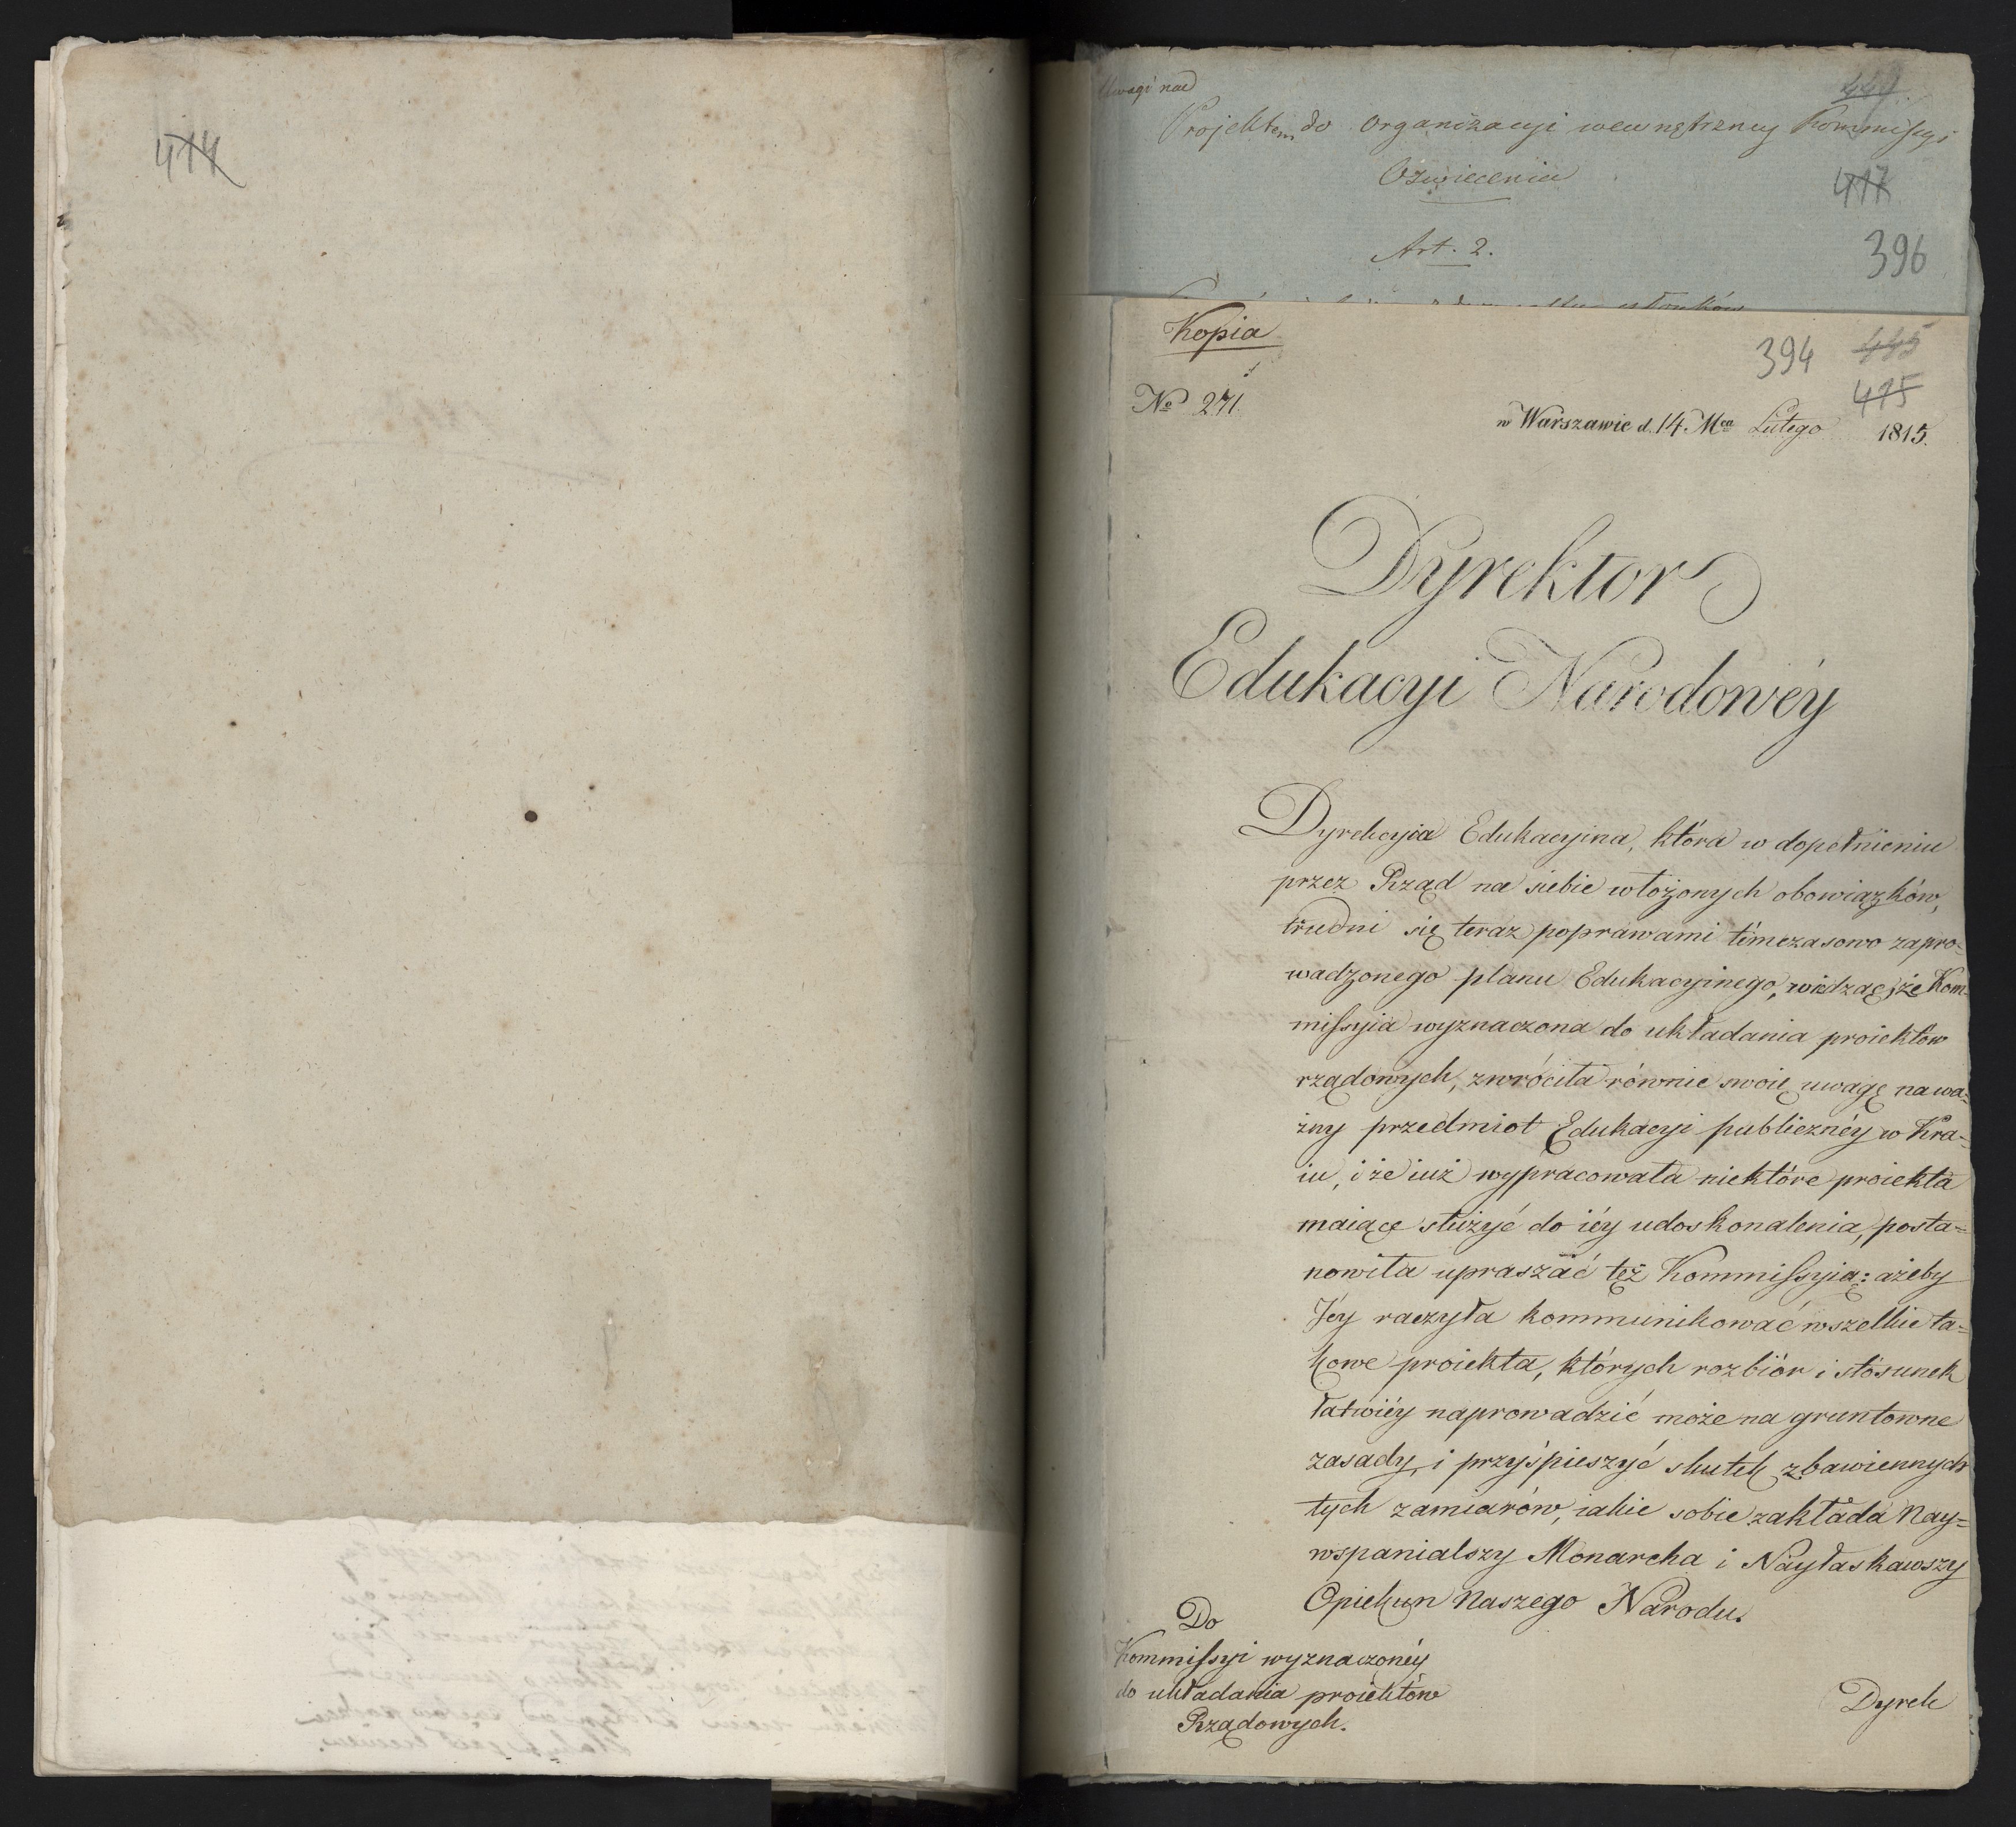 414
Uwagi nad
449
Projektem do Organizacyi wewnętrzney Kommissyi
Oświecenia
417
Art. 2.
396
Kopia
394 445
415
No 271.
w Warszawie d. 14 Mca Lutego 1815.
Dyrektor
Edukacyi Narodowéy
Dyrekcyia Edukacyina, która w dopełnieniu
przez Rząd na siebie włożonych obowiązków,
trudni się teraz poprawami tймczasowo zapro=
wadzonego planu Edukacyinego, widząc, że Kom=
missyia wyznaczona do układania proiektów
rządowych, zwróciła równie swoię uwagę na wa=
żny przedmiot Edukacyi publicznéy w Kra=
iu, i że iuż wypracowała niektóre proiekta
maiące służyć do iéy udoskonalenia, posta=
nowiła upraszać też Kommissyią: ażeby
Jéy raczyła kommunikować wszelkie ta=
kowe proiekta, których rozbiór i stosunek
łatwiéy naprowadzić może na gruntowne
zasady, i przyśpieszyć skutek zbawiennych
tych zamiarów, iakie sobie zakłada Nay=
wspanialszy Monarcha i Nayłaskawszy
Opiekun Naszego Narodu.
Do
Kommissyi wyznaczonéy
do układania proiektów
Rządowych.
Dyrek